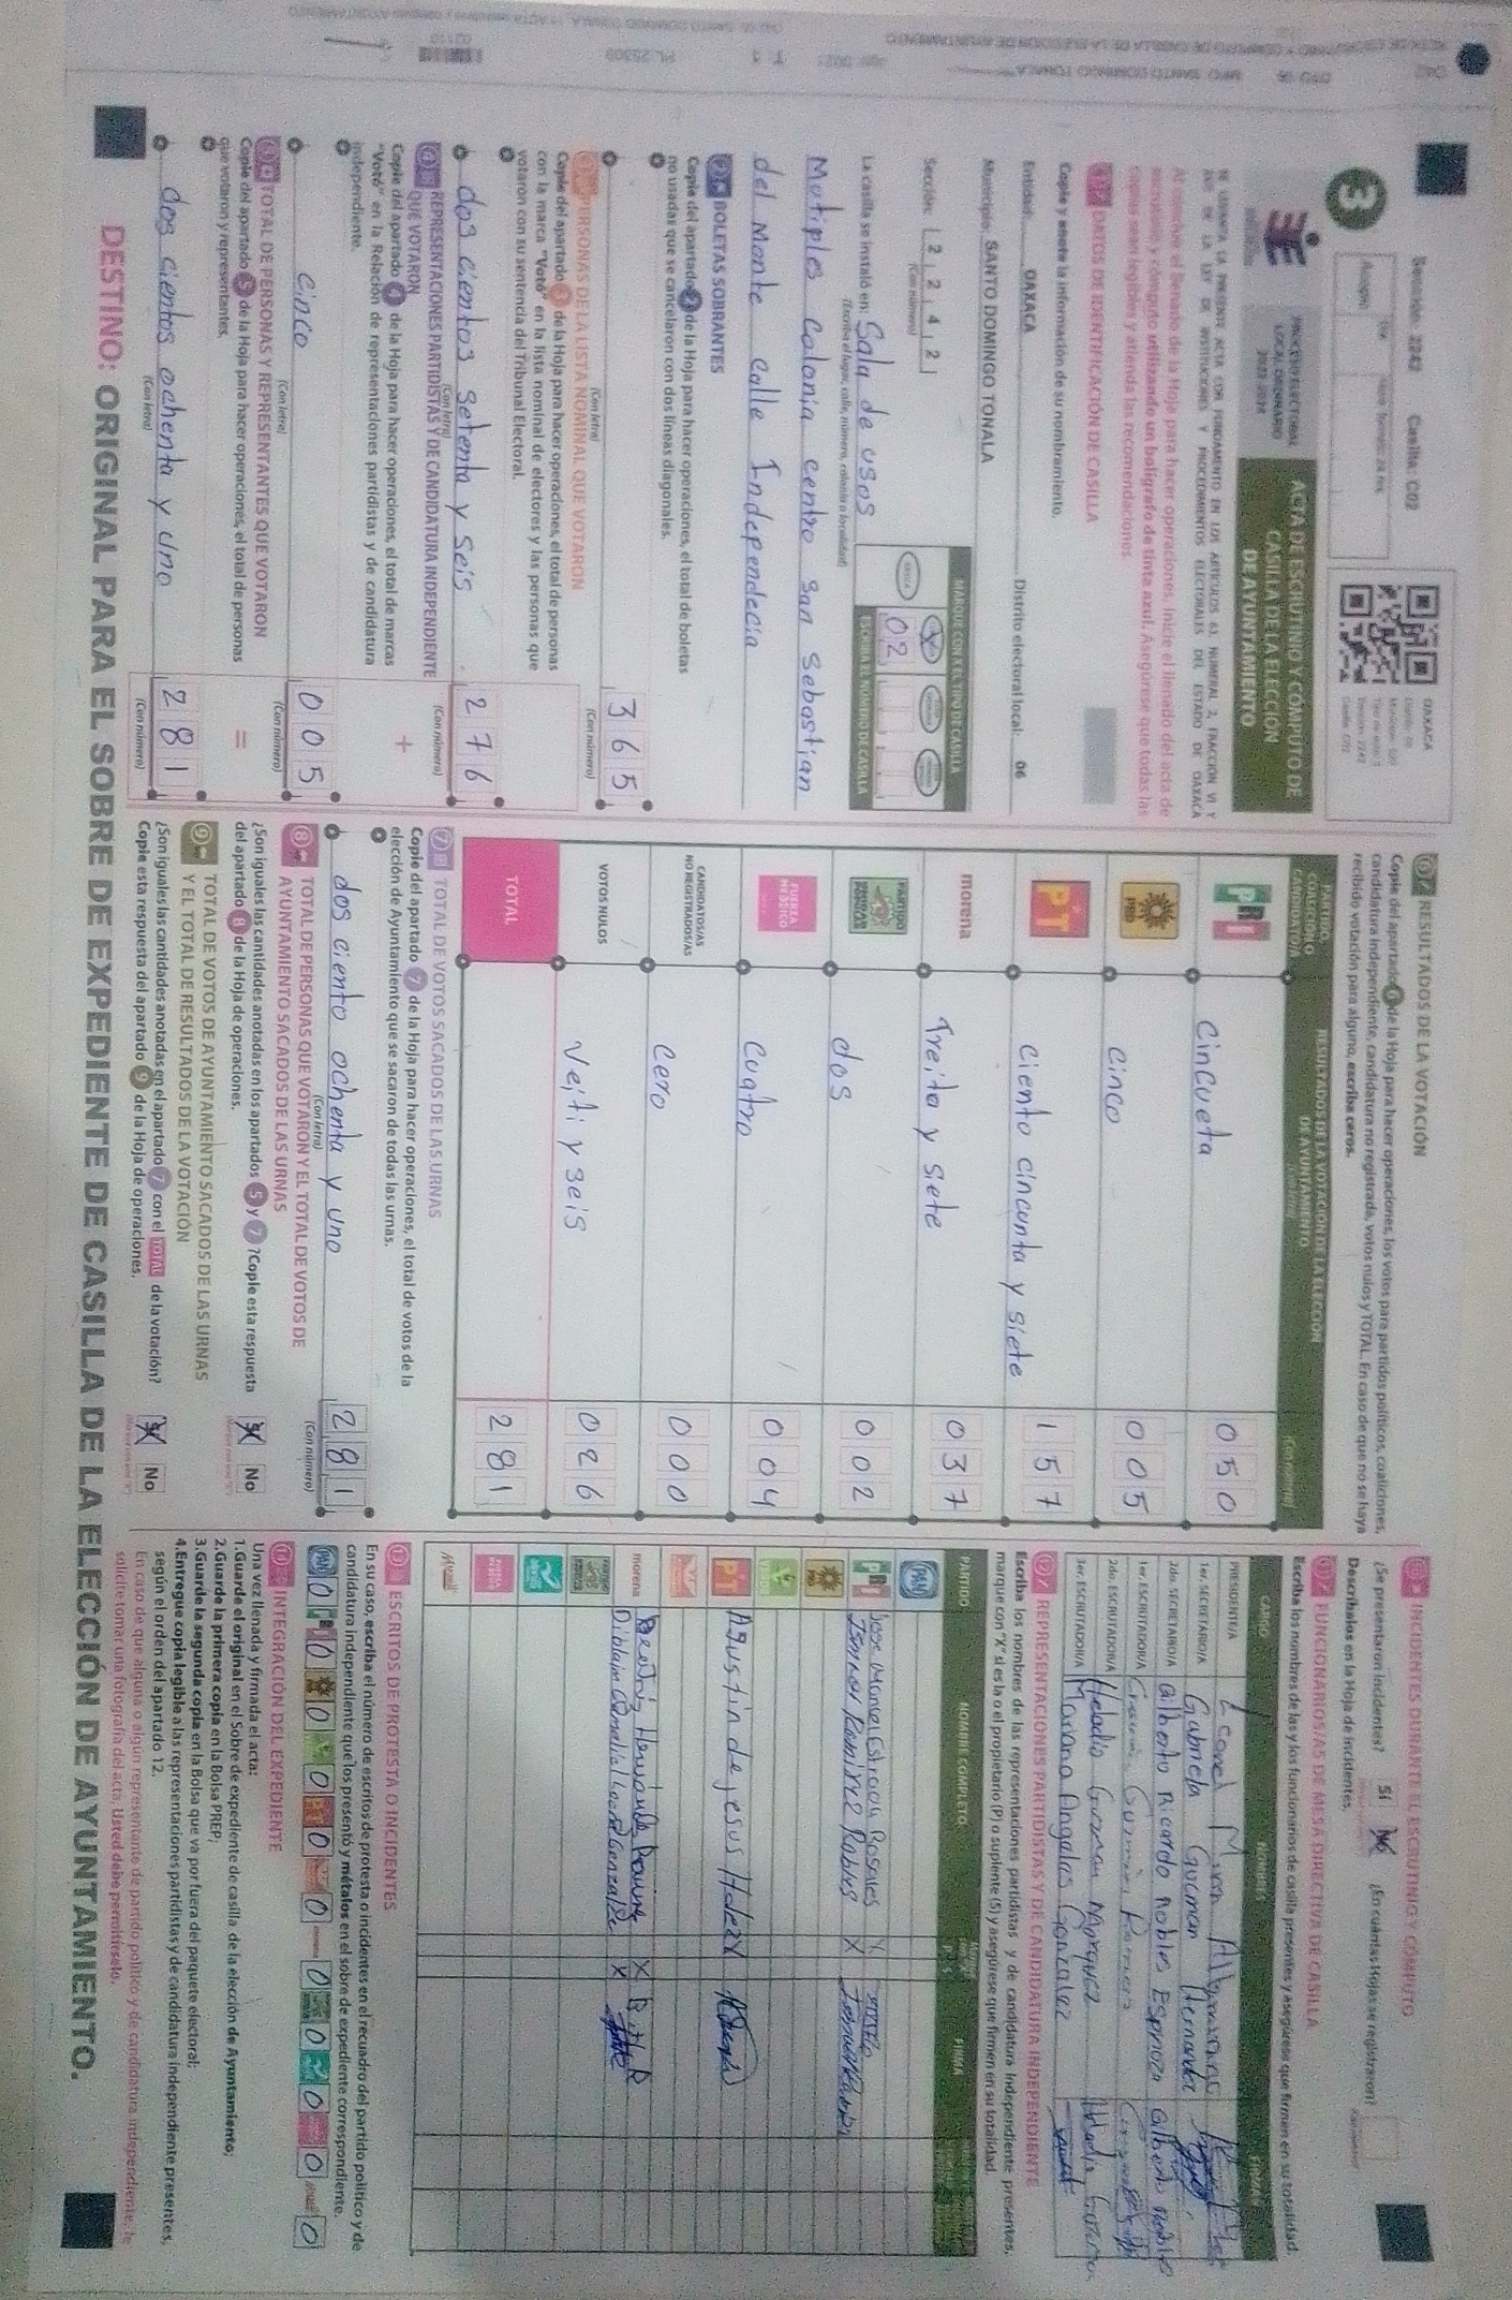 Sección: 2242 Casilla: C02
OAXACA
3
PROCESO ELECTORAL
LOCAL ORDINARIO
2023-2024
ACTA DE ESCRUTINIO Y CÓMPUTO DE
CASILLA DE LA ELECCIÓN
DE AYUNTAMIENTO
SE LEVANTA LA PRESENTE ACTA CON FUNDAMENTO EN LOS ARTÍCULOS 63, NUMERAL 2, FRACCIÓN VI Y
DE LA LEY DE INSTITUCIONES Y PROCEDIMIENTOS ELECTORALES DEL ESTADO DE OAXACA
Al concluir el llenado de la Hoja para hacer operaciones, inicie el llenado del acta de
escrutinio y cómputo utilizando un bolígrafo de tinta azul. Asegúrese que todas las
copias sean legibles y atienda las recomendaciones.
1 DATOS DE IDENTIFICACIÓN DE CASILLA
Copie y anote la información de su nombramiento.
Entidad: OAXACA Distrito electoral local: 06
Municipio: SANTO DOMINGO TONALA
Sección: 2 2 4 2
(Con número)
MARQUE CON X EL TIPO DE CASILLA
ESCRIBA EL NÚMERO DE CASILLA
02
La casilla se instaló en: Sala de usos
(Escriba el lugar, calle, número, colonia o localidad)
Motiples Colonia centro San Sebastian
del Monte Calle Independecia
2 BOLETAS SOBRANTES
Copie del apartado 2 de la Hoja para hacer operaciones, el total de boletas
no usadas que se cancelaron con dos líneas diagonales.
3 6 5
(Con letra) (Con número)
3 PERSONAS DE LA LISTA NOMINAL QUE VOTARON
Copie del apartado 3 de la Hoja para hacer operaciones, el total de personas
con la marca "Votó" en la lista nominal de electores y las personas que
votaron con su sentencia del Tribunal Electoral.
dos cientos setenta y seis 2 7 6
(Con letra) (Con número)
4 REPRESENTACIONES PARTIDISTAS Y DE CANDIDATURA INDEPENDIENTE
QUE VOTARON
Copie del apartado 4 de la Hoja para hacer operaciones, el total de marcas
"Votó" en la Relación de representaciones partidistas y de candidatura
independiente.
+
cinco 0 0 5
(Con letra) (Con número)
5 TOTAL DE PERSONAS Y REPRESENTANTES QUE VOTARON
Copie del apartado 5 de la Hoja para hacer operaciones, el total de personas
que votaron y representantes.
=
dos cientos ochenta y uno 2 8 1
(Con letra) (Con número)
6 RESULTADOS DE LA VOTACIÓN
Copie del apartado 6 de la Hoja para hacer operaciones, los votos para partidos políticos, coaliciones,
candidatura independiente, candidatura no registrada, votos nulos y TOTAL. En caso de que no se haya
recibido votación para alguno, escriba ceros.
PARTIDO, COALICIÓN O CANDIDATO/A
RESULTADOS DE LA VOTACIÓN DE LA ELECCIÓN
DE AYUNTAMIENTO
(Con letra) (Con número)
PRI Cincueta 0 5 0
PRD cinco 0 0 5
PT ciento cincunta y siete 1 5 7
morena Treita y siete 0 3 7
PARTIDO dos 0 0 2
FUERZA MÉXICO cuatro 0 0 4
CANDIDATOS/AS
NO REGISTRADOS/AS cero 0 0 0
VOTOS NULOS Veiti y seis 0 2 6
TOTAL 2 8 1
7 TOTAL DE VOTOS SACADOS DE LAS URNAS
Copie del apartado 7 de la Hoja para hacer operaciones, el total de votos de la
elección de Ayuntamiento que se sacaron de todas las urnas.
dos ciento ochenta y uno 2 8 1
(Con letra) (Con número)
8 TOTAL DE PERSONAS QUE VOTARON Y EL TOTAL DE VOTOS DE
AYUNTAMIENTO SACADOS DE LAS URNAS
¿Son iguales las cantidades anotadas en los apartados 5 y 7? Copie esta respuesta
del apartado 8 de la Hoja de operaciones. No
9 TOTAL DE VOTOS DE AYUNTAMIENTO SACADOS DE LAS URNAS
Y EL TOTAL DE RESULTADOS DE LA VOTACIÓN
¿Son iguales las cantidades anotadas en el apartado 7 con el TOTAL de la votación?
Copie esta respuesta del apartado 9 de la Hoja de operaciones. No
10 INCIDENTES DURANTE EL ESCRUTINIO Y CÓMPUTO
¿Se presentaron incidentes? Sí No ¿En cuántas Hojas se registraron?
Descríbalos en la Hoja de incidentes.
11 FUNCIONARIOS/AS DE MESA DIRECTIVA DE CASILLA
Escriba los nombres de las y los funcionarios de casilla presentes y asegúrese que firmen en su totalidad.
CARGO NOMBRES FIRMAS
PRESIDENTE/A
1er. SECRETARIO/A Gabriela Guzman Hernandez
2do. SECRETARIO/A Gilberto Ricardo Robles Espinoza
1er. ESCRUTADOR/A
2do. ESCRUTADOR/A Heladio Guzman Marquez
3er. ESCRUTADOR/A Mariana Angalas Gonzalez
12 REPRESENTACIONES PARTIDISTAS Y DE CANDIDATURA INDEPENDIENTE
Escriba los nombres de las representaciones partidistas y de candidatura independiente presentes,
marque con "X" si es la o el propietario (P) o suplente (S) y asegúrese que firmen en su totalidad.
PARTIDO NOMBRE COMPLETO FIRMA
PAN
PRI Jose Manuel Estrada Rosales X
PRD Ismael Ramirez Robles X
PT Agustin de jesus Hdez X
morena Beatriz Hernandez Ramirez X
X
13 ESCRITOS DE PROTESTA O INCIDENTES
En su caso, escriba el número de escritos de protesta o incidentes en el recuadro del partido político y de
candidatura independiente que los presentó y métalos en el sobre de expediente correspondiente.
PAN 0 PRI 0 0 0 PT 0 0 0 0 0 0 0
14 INTEGRACIÓN DEL EXPEDIENTE
Una vez llenada y firmada el acta:
1.Guarde el original en el Sobre de expediente de casilla de la elección de Ayuntamiento;
2.Guarde la primera copia en la Bolsa PREP;
3.Guarde la segunda copia en la Bolsa que va por fuera del paquete electoral;
4.Entregue copia legible a las representaciones partidistas y de candidatura independiente presentes,
según el orden del apartado 12.
En caso de que alguna o algún representante de partido político y de candidatura independiente, le
solicite tomar una fotografía del acta, Usted debe permitírselo.
DESTINO: ORIGINAL PARA EL SOBRE DE EXPEDIENTE DE CASILLA DE LA ELECCIÓN DE AYUNTAMIENTO.